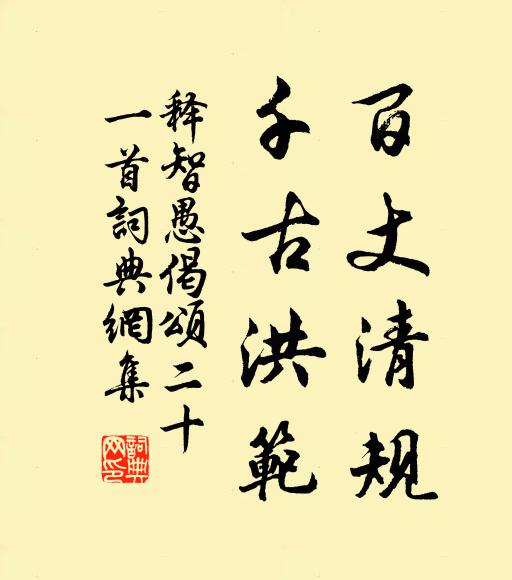 百丈清規
千古洪範
释智愚偈頌二十
一首詞典網集
詞典
网印